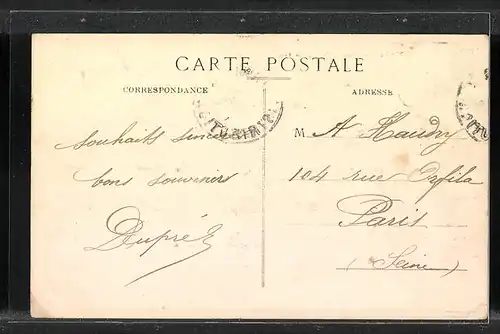 CARTE POSTALE
CORRESPONDANCE
ADRESSE
souhaits sincères
bons souvenirs
Dupré
M A Haudry
104 rue Orfila
Paris
(Seine)